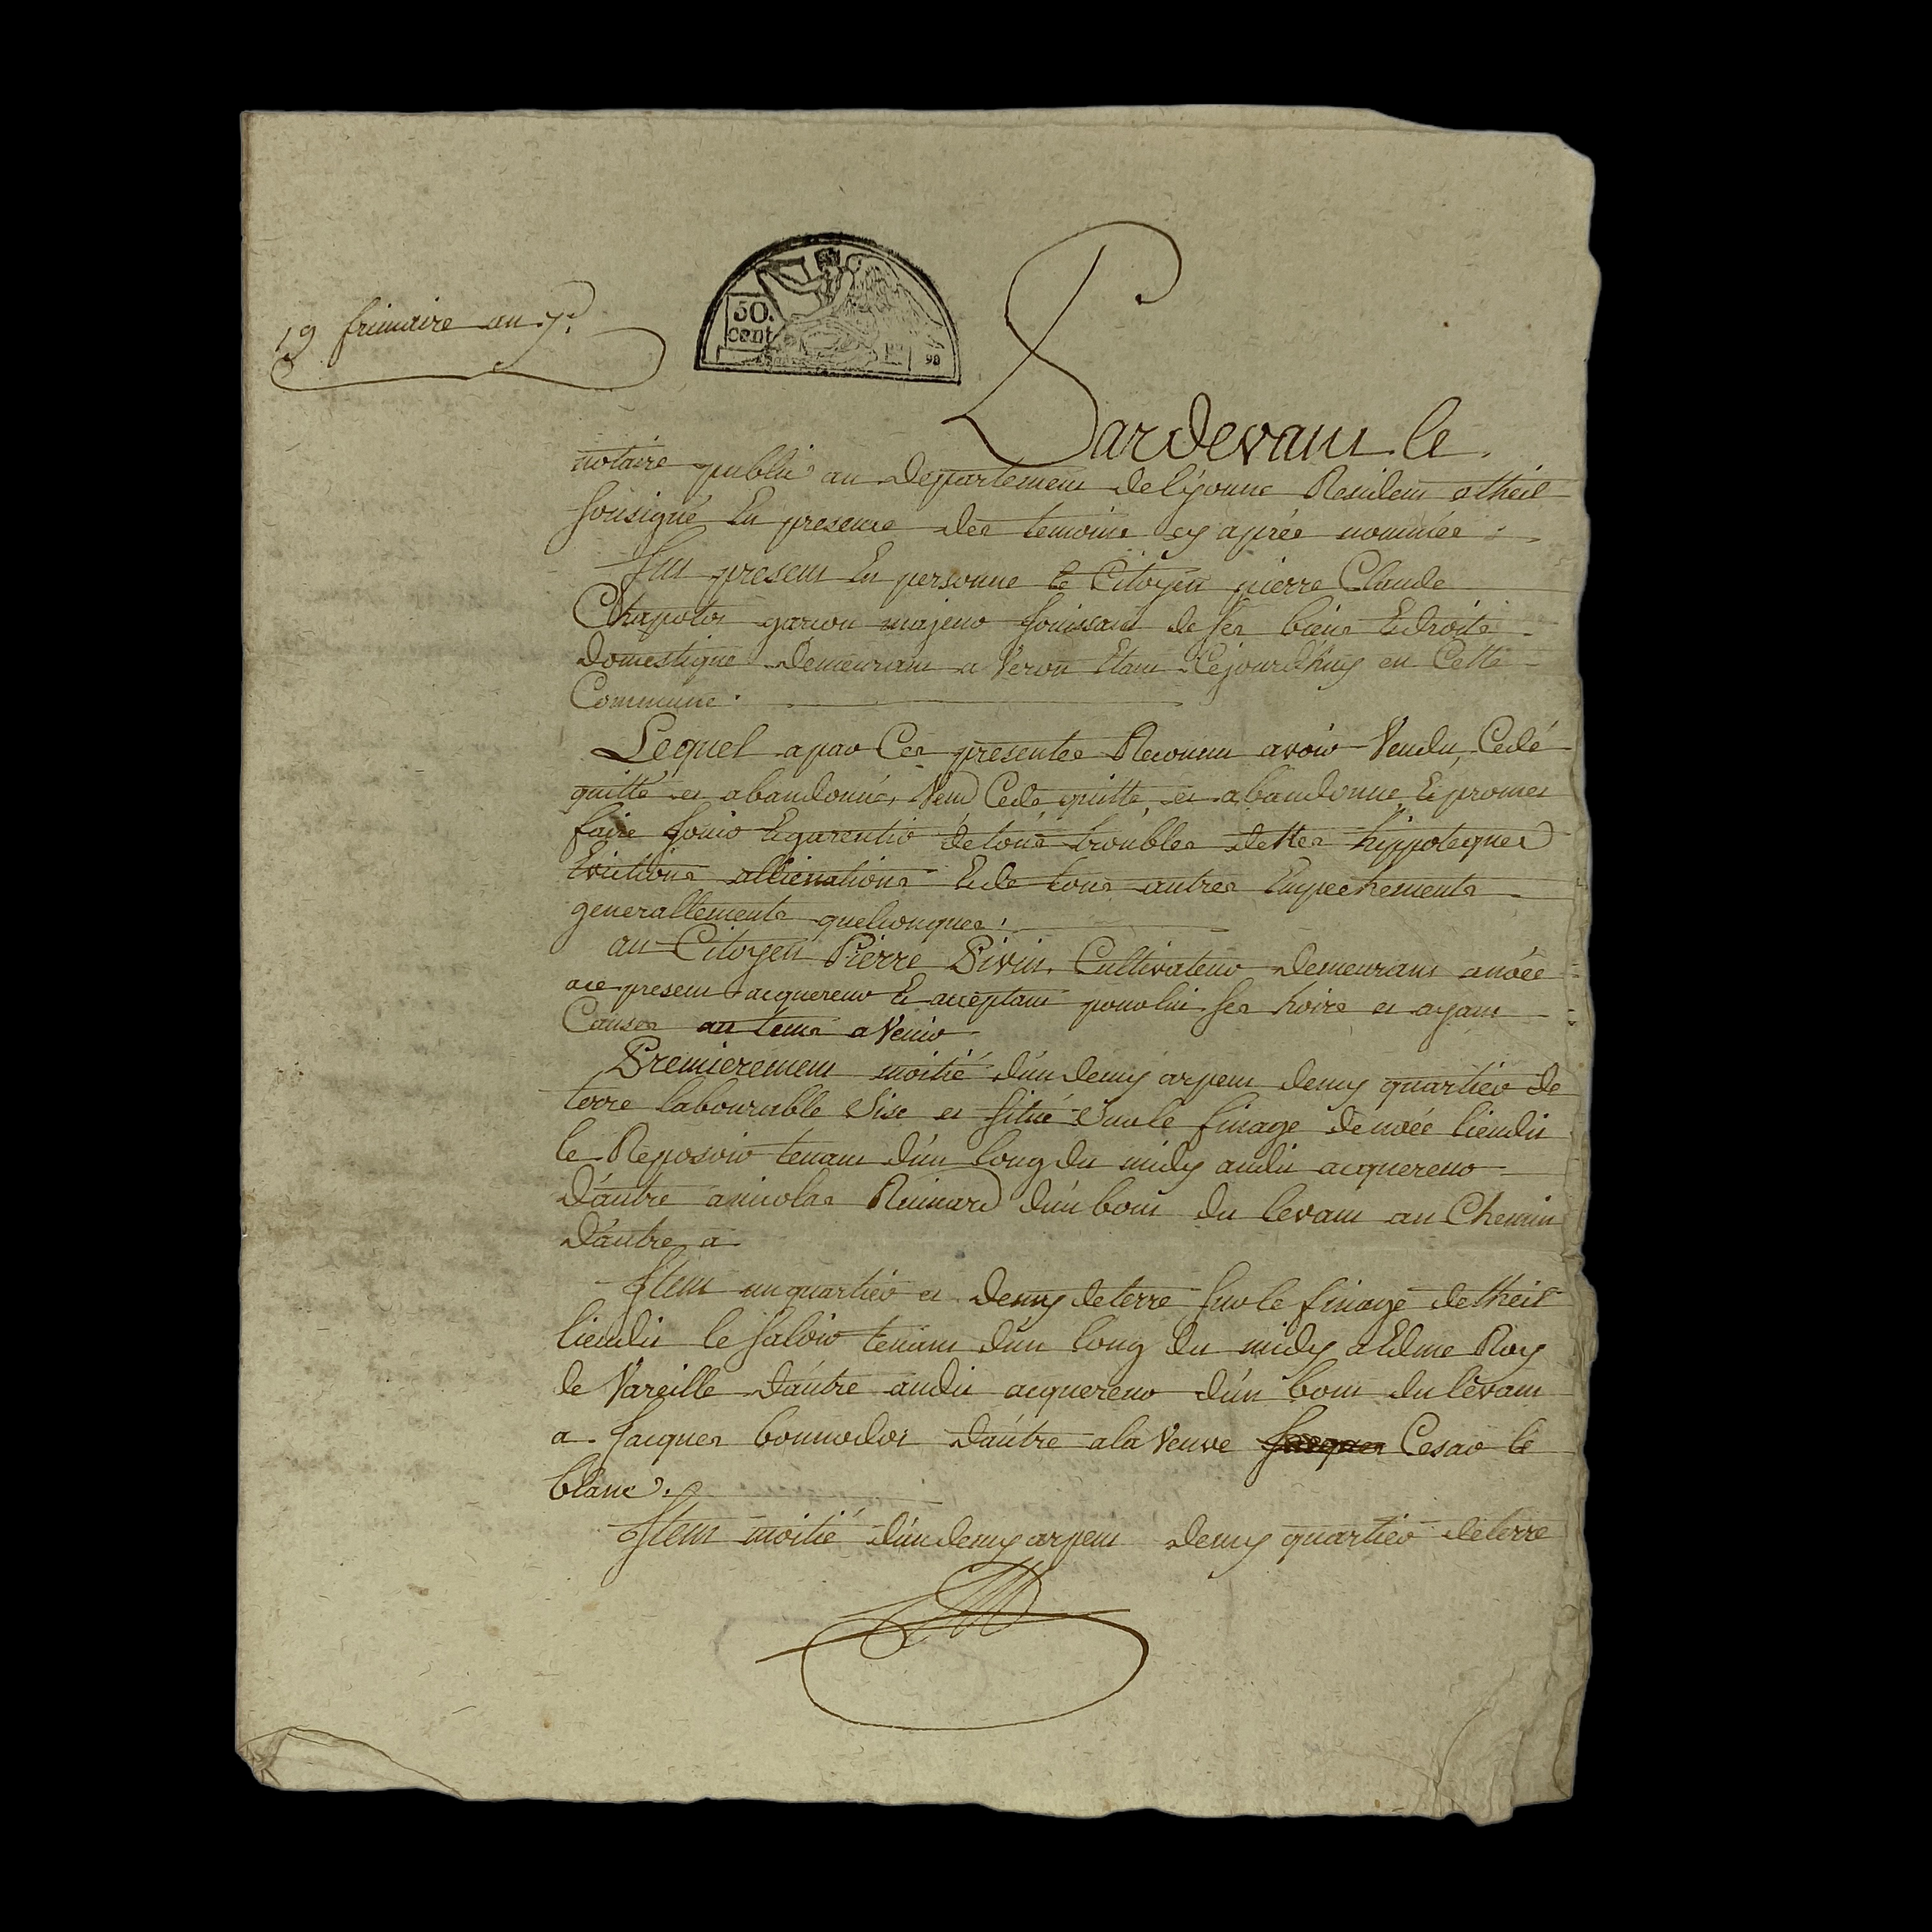 19 frimaire an 7.e
50.
cent
98
Pardevant le
notaire public au Departement de l'yonne Resident a theil
sousigné En presence des temoins cy aprés nommées
fut present En personne le Citoyen pierre Claude
Chapotot garcon majeur Jouissant de ses biens Et droits
domestique demeurant a Veron Etant Cejourd'huy en Cette
Commune.
Lequel a par Ces presentes Reconnu avoir Vendu, Cedé
quitté et abandonné, Vend Cede quitte, et abandonne Et promet
faire Jouir Et garentir de tous troubles dettes hippoteques
Evictions allienations Et de tous autres Empechements
generallements quelconques.
au Citoyen Pierre Pivin, Cultivateur demeurant a noée
a ce present acquereur Et acceptant pour lui ses hoirs et ayant
Causes au tems a Venir
Premierement moitié d'un demy arpent demy quartier de
terre labourable Sise et situé Sur le finage de noée lieudit
le Reposoir tenant d'un long du midy audit acquereur
d'autre a nicolas Ruinard d'un bout du levant au Chemin
d'autre a
Item un quartier et demy de terre sur le finage de theil
lieudit le saloir tenant d'un long du midy a Edme Roy
de Vareille d'autre audit acquereur d'un bout du levant
a Jacques bonnodot d'autre a la Veuve Jacques Cesar le
blanc.
Item moitié d'un demy arpent demy quartier de terre